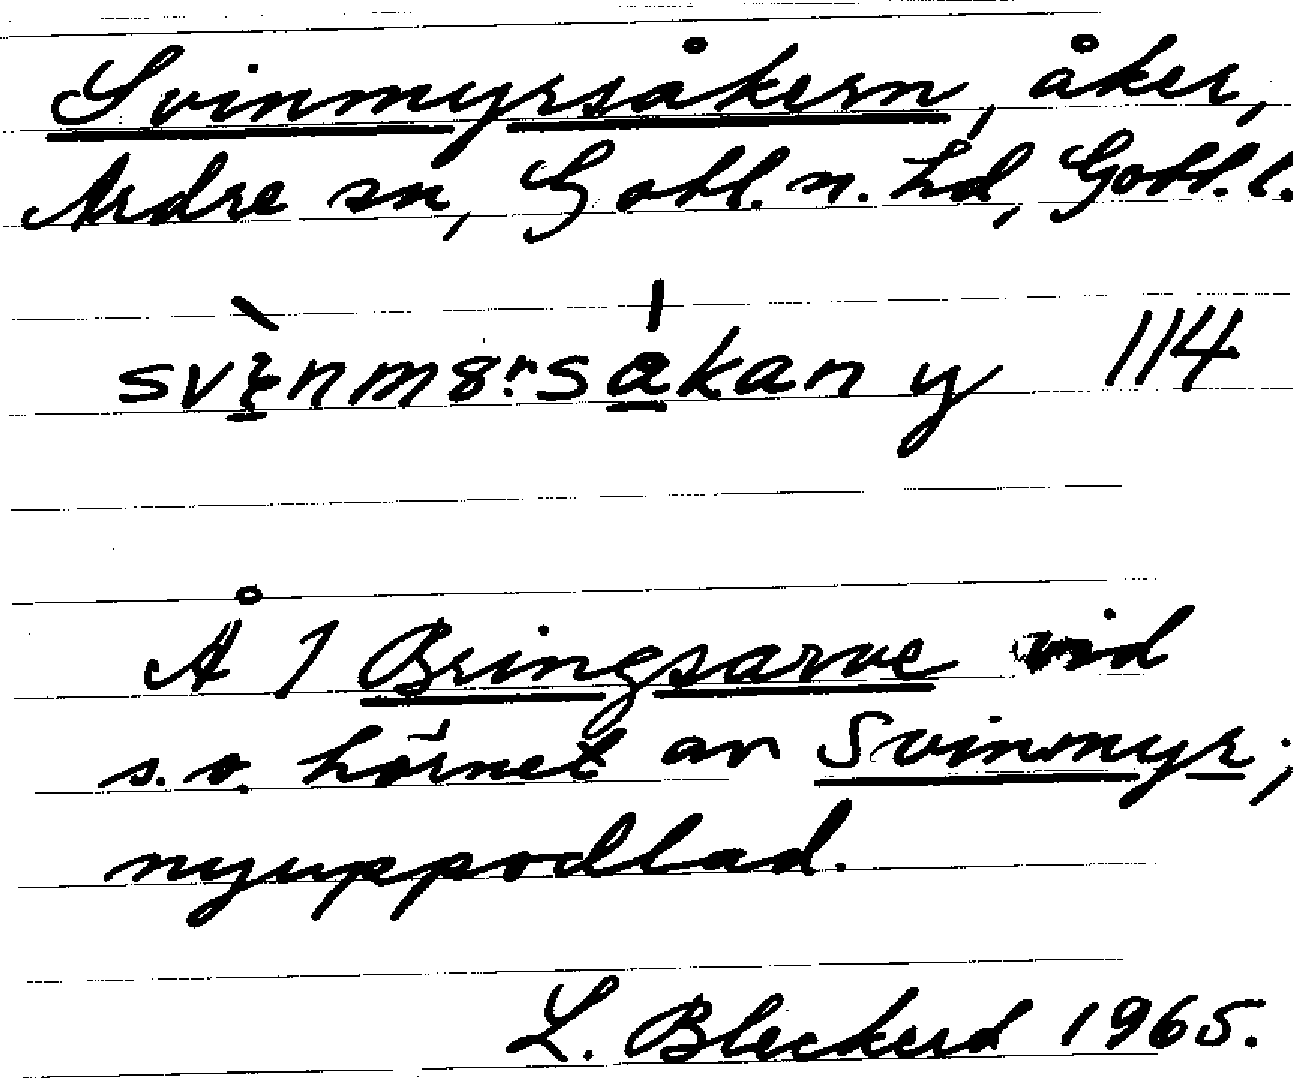 Svinmyrsåkern, åker,
Ardre sn, Gotl. n. hd, Gotl. l.
y 114
Å 1 Bringsarve vid
s.o. hörnet av Svinmyr;
nyuppodlad.
L. Bleckerd 1965.